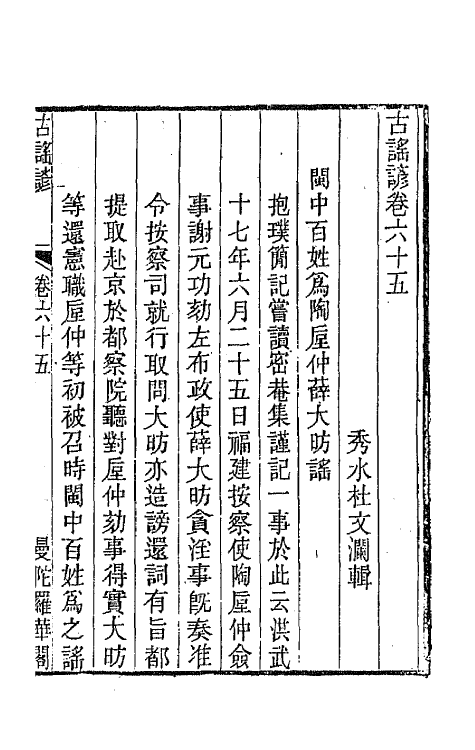 古謠諺卷六十五
秀水杜文瀾輯
閩中百姓爲陶垕仲薛大昉謠
抱璞簡記嘗讀密菴集謹記一事於此云洪武
十七年六月二十五日福建按察使陶垕仲僉
事謝元功劾左布政使薛大昉貪淫事旣奏准
令按察司就行取問大昉亦造謗還詞有旨都
提取赴京於都察院聽對垕仲劾事得實大昉
等還憲職垕仲等初被召時閩中百姓爲之謠
古謠諺
卷六十五
一
曼陀羅華閣